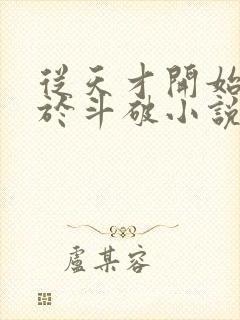 從天才開始
於斗破小說
盧某容